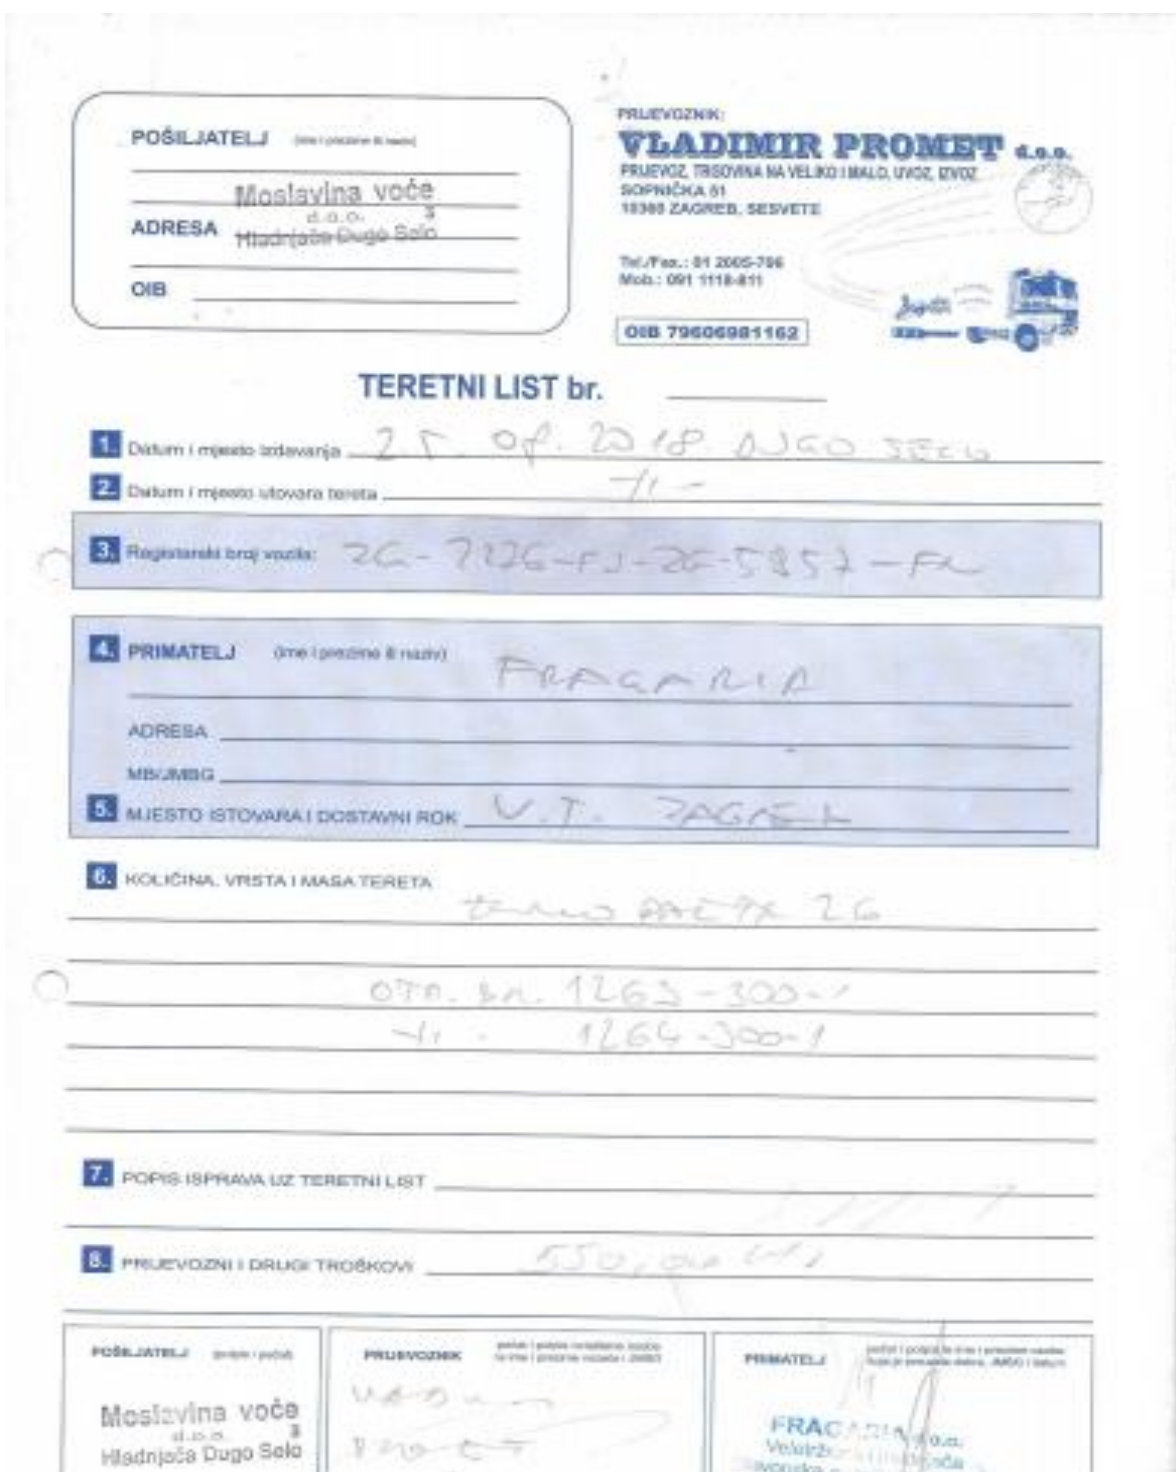 POŠILJATELJ (ime i prezime ili naziv)
Moslavina voće
d.o.o. 3
ADRESA Hladnjača Dugo Selo
OIB
PRIJEVOZNIK:
VLADIMIR PROMET d.o.o.
PRIJEVOZ, TRGOVINA NA VELIKO I MALO, UVOZ, IZVOZ
SOPNIČKA 51
10360 ZAGREB, SESVETE
Tel./Fax.: 01 2005-706
Mob.: 091 1118-811
OIB 79606981162
TERETNI LIST br.
1. Datum i mjesto izdavanja 25. 08. 2018. DUGO SELO
2. Datum i mjesto utovara tereta -/1-
3. Registarski broj vozila: ZG-7226-FJ-ZG-5957-
4. PRIMATELJ (ime i prezime ili naziv) FRAGARIA
ADRESA
MB/JMBG
5. MJESTO ISTOVARA I DOSTAVNI ROK V.T. ZAGREB
6. KOLIČINA, VRSTA I MASA TERETA
26
OTP. BR. 1263-300-1
-/1- 1264-300-1
7. POPIS ISPRAVA UZ TERETNI LIST
8. PRIJEVOZNI I DRUGI TROŠKOVI 550,00
POŠILJATELJ
Moslavina voće
d.o.o. 3
Hladnjača Dugo Selo
PRIJEVOZNIK
PRIMATELJ
FRAGARIA d.o.o.